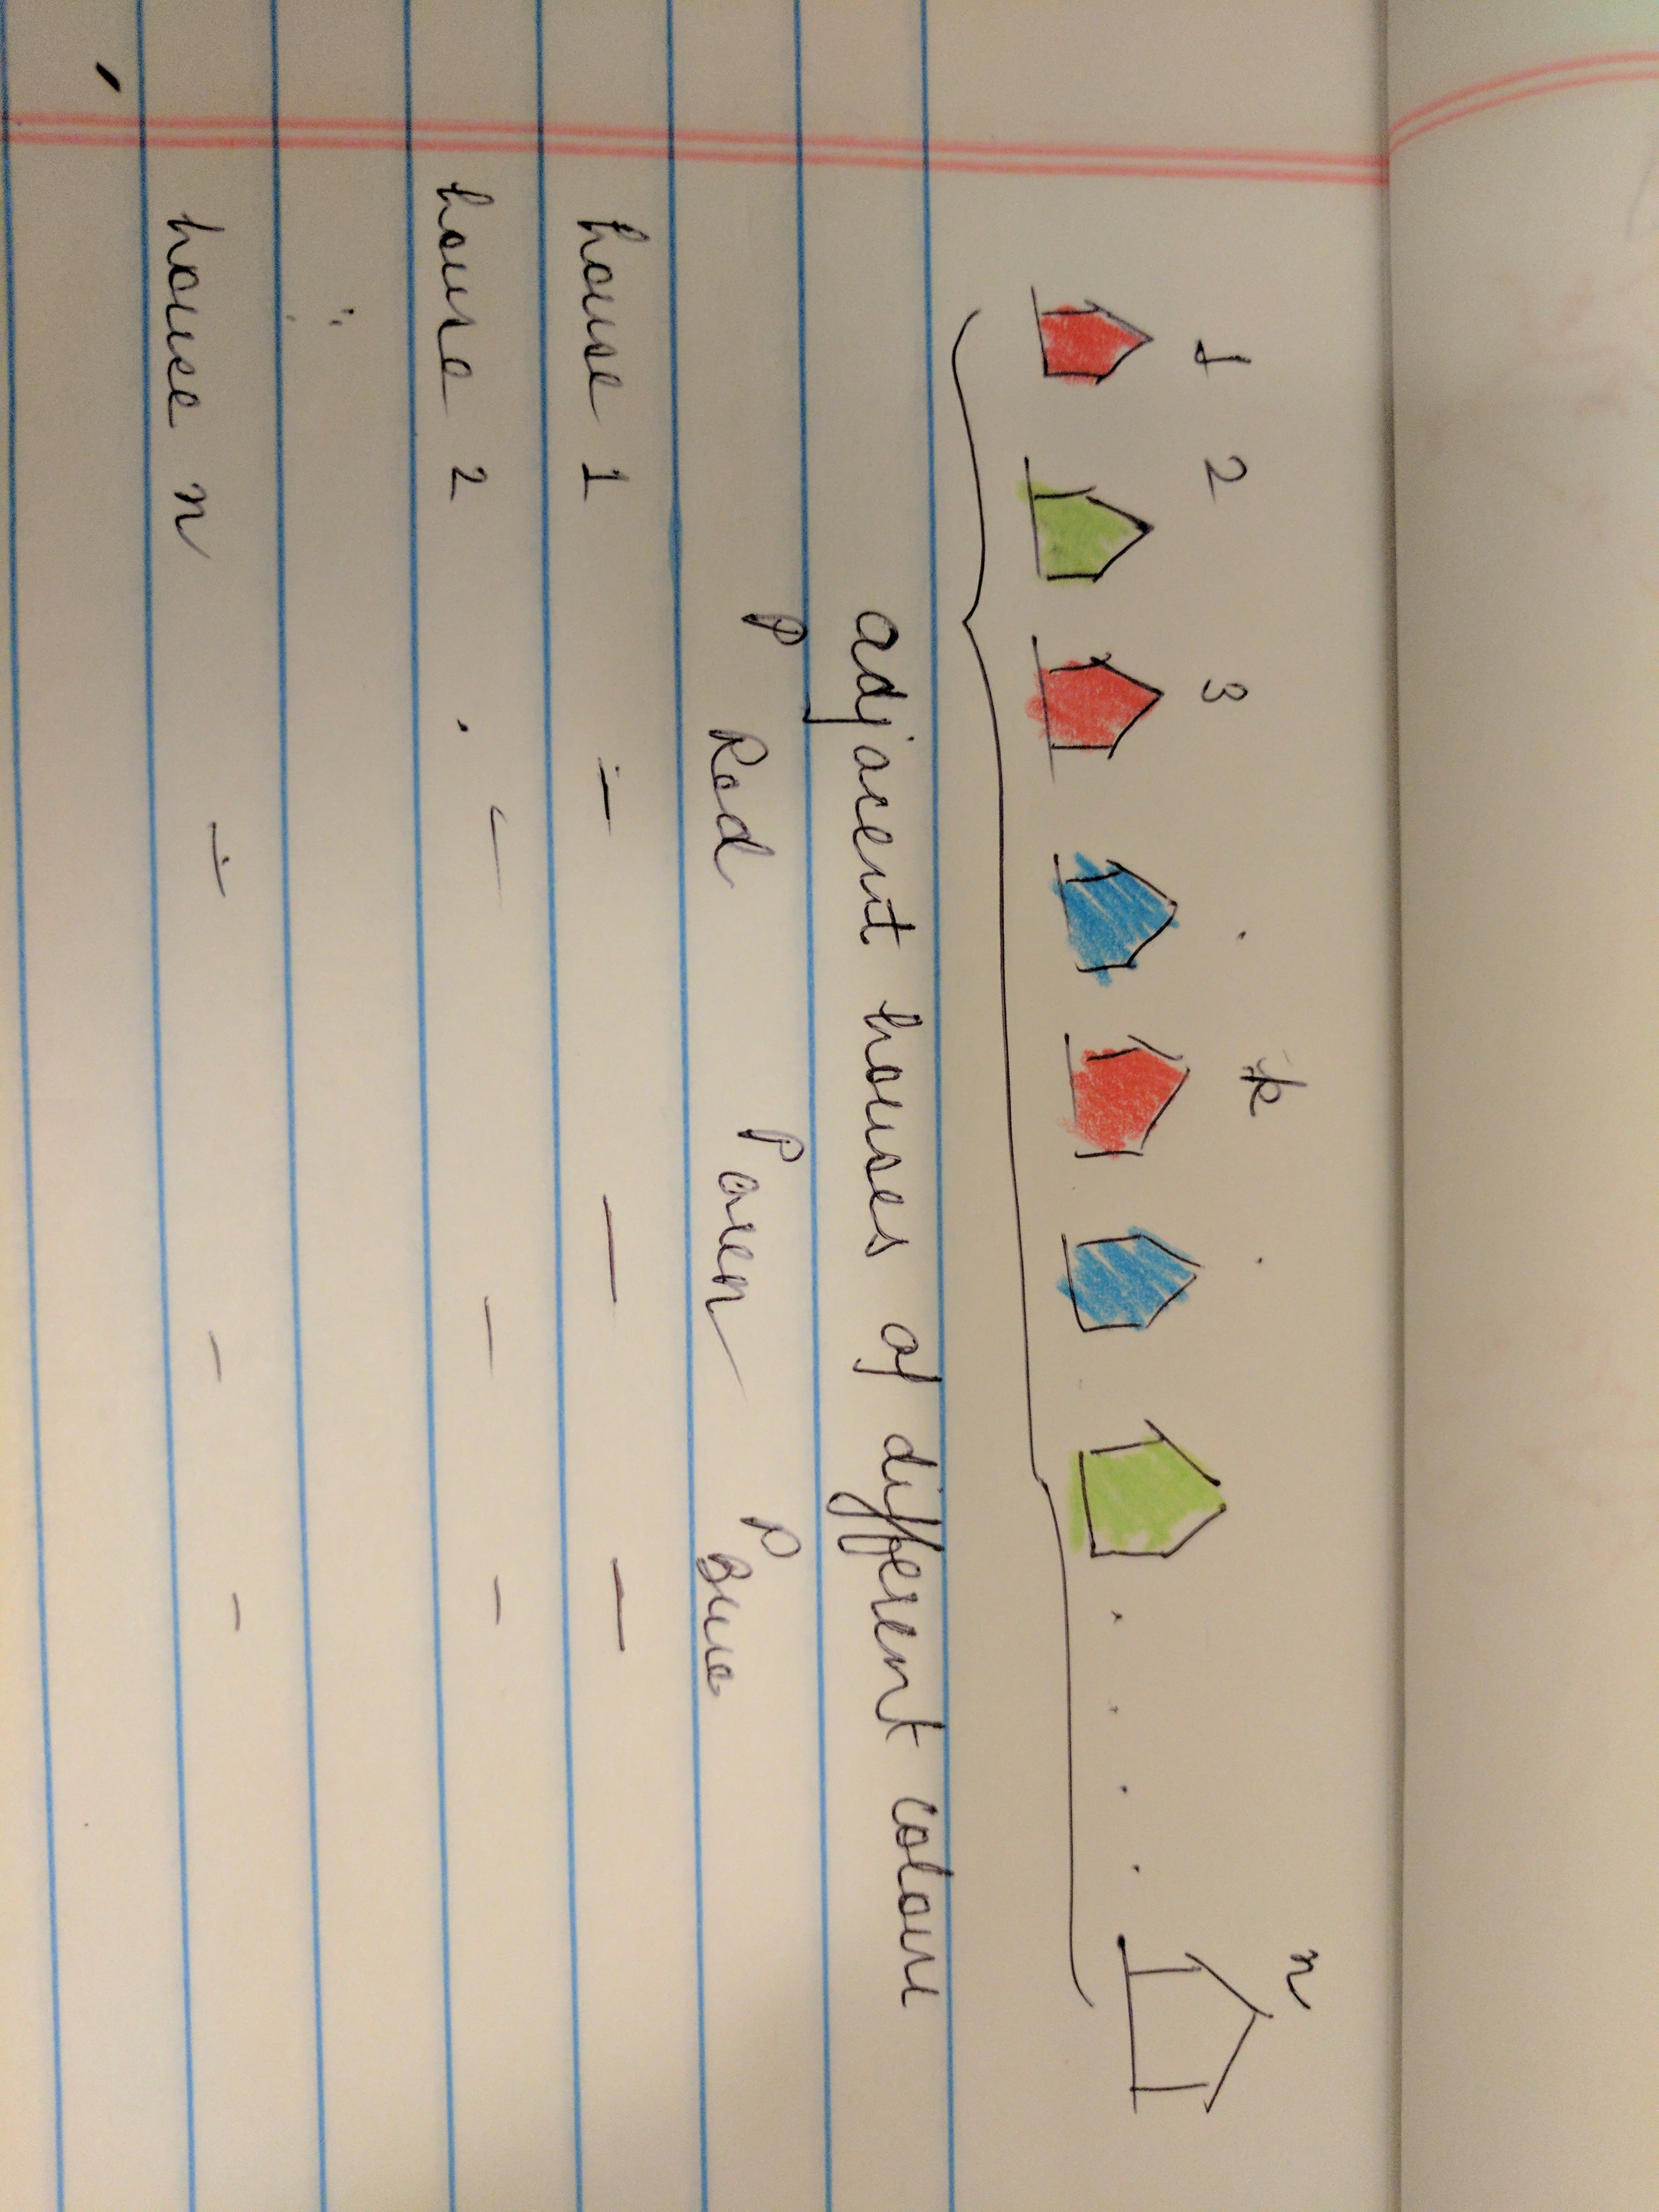 1 2 3 . k . n
adjacent houses of different colour
P Red P Green P Blue
house 1 — — —
house 2 — — —
house n — — —